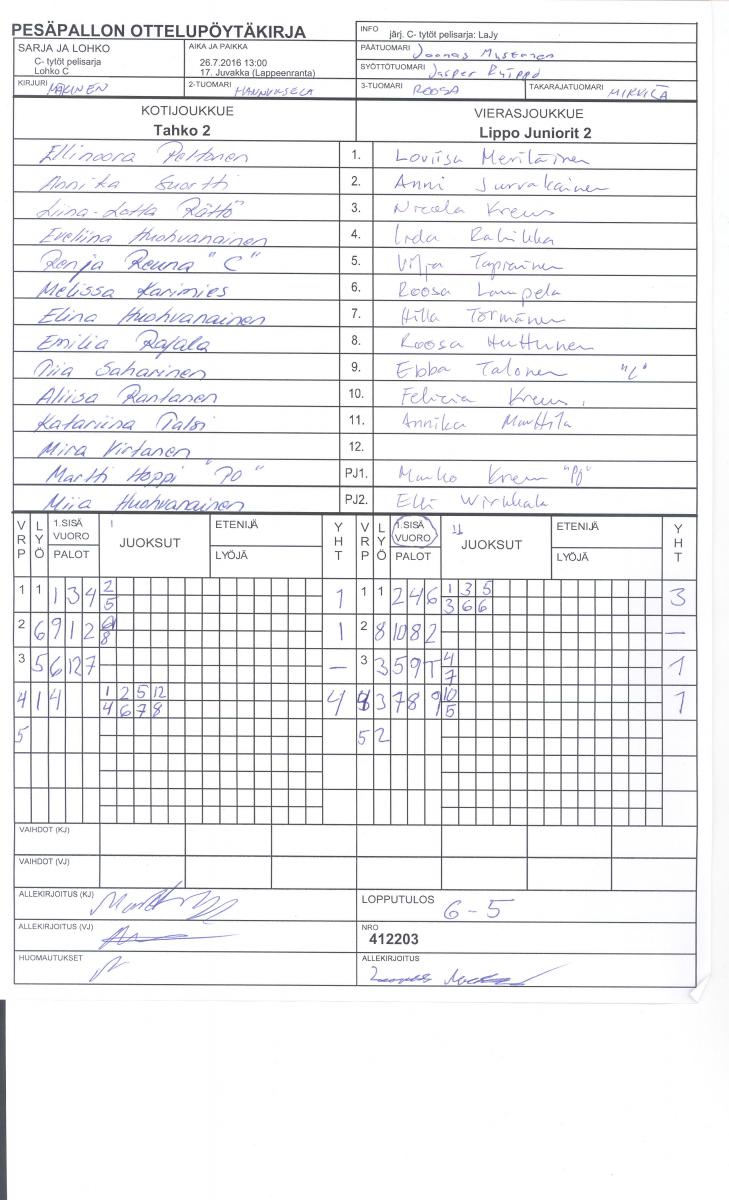 PESÄPALLON OTTELUPÖYTÄKIRJA
INFO järj. C- tytöt pelisarja: LaJy
SARJA JA LOHKO
C- tytöt pelisarja
Lohko C
AIKA JA PAIKKA
26.7.2016 13:00
17. Juvakka (Lappeenranta)
PÄÄTUOMARI Joonas Mustonen
SYÖTTÖTUOMARI Jasper
KIRJURI MÄKINEN
2-TUOMARI HANNUKSELA
3-TUOMARI ROOSA
TAKARAJATUOMARI
KOTIJOUKKUE
Tahko 2
VIERASJOUKKUE
Lippo Juniorit 2
Ellinoora Peltonen 1. Loviisa Meriläinen
Annika Suortti 2. Anni Jurvakainen
Liina-Lotta Rättö 3. Nicola Kreus
Eveliina Huohvanainen 4. Iida Rahikka
Ronja Reuna "C" 5. Vilja Tapiainen
Melissa Karimies 6. Roosa Lampela
Elina Huohvanainen 7. Hilla Törmänen
Emilia Rajala 8. Roosa Huttunen
Tiia Saharinen 9. Ebba Talonen "C"
Aliisa Rantanen 10. Felicia Kreus
Katariina Talsi 11. Annika Marttila
Mira Virtanen 12.
Martti Hoppi "PO" PJ1. Marko Kreus "PJ"
Miia Huohvanainen PJ2. Elli Wirkkala
VRP LYÖ 1.SISÄ VUORO PALOT JUOKSUT ETENIJÄ LYÖJÄ YHT VRP LYÖ 1.SISÄ VUORO PALOT JUOKSUT ETENIJÄ LYÖJÄ YHT
1 1 1 3 4 2/5 1 1 1 2 4 6 1/3 3/6 5/6 3
2 6 9 1 2 8 1 2 8 10 8 2 –
3 5 6 12 7 – 3 3 5 9 T 4/7 1
4 1 4 1/4 2/6 5/7 12/8 4 4 3 7 8 9 10/5 1
5 5 2
VAIHDOT (KJ)
VAIHDOT (VJ)
ALLEKIRJOITUS (KJ)
LOPPUTULOS 6-5
ALLEKIRJOITUS (VJ)
NRO
412203
HUOMAUTUKSET
ALLEKIRJOITUS